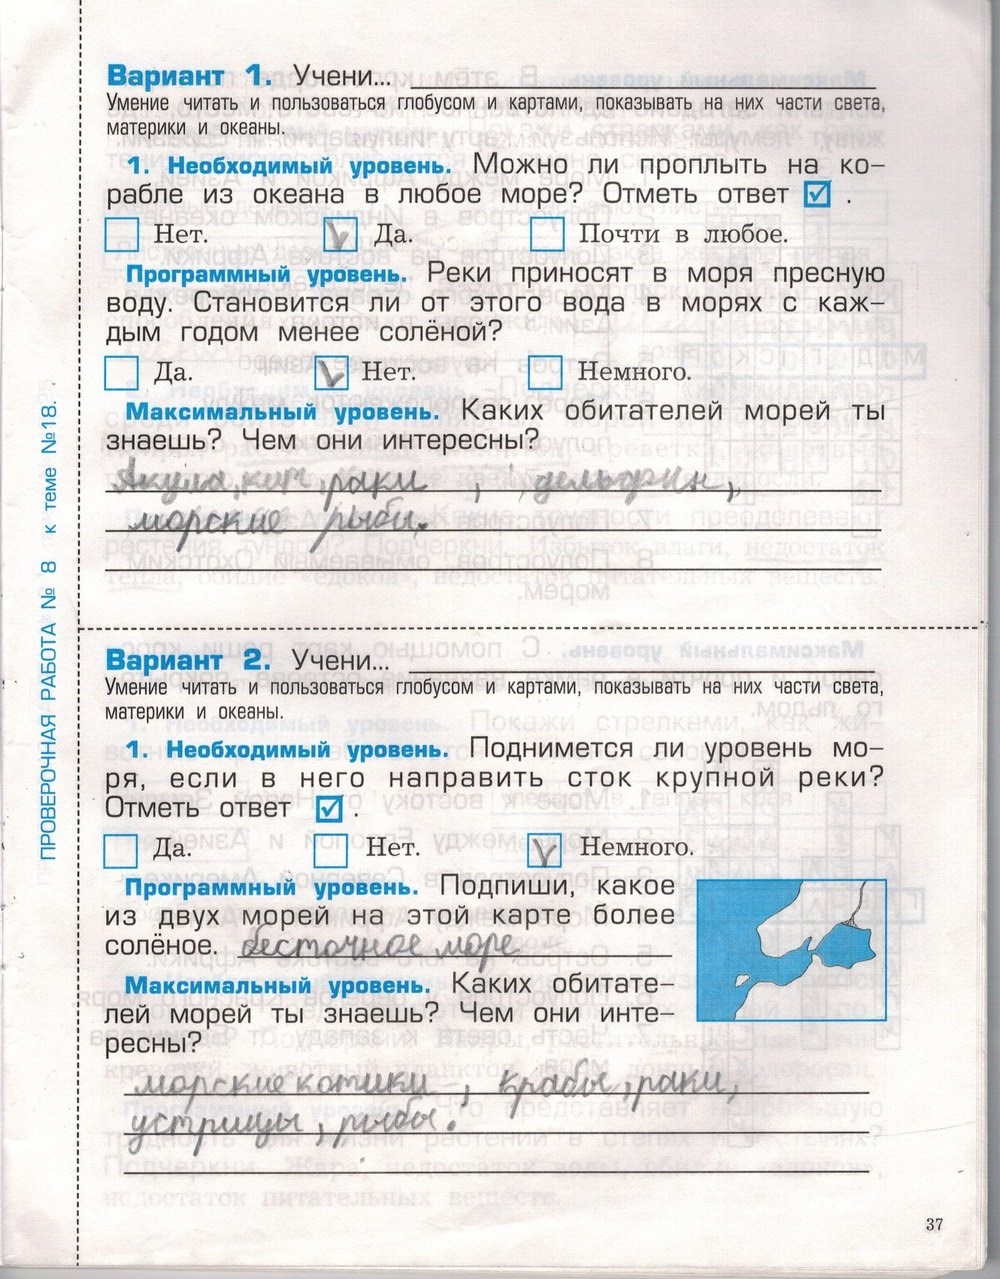 Вариант 1. Учени...
Умение читать и пользоваться глобусом и картами, показывать на них части света,
материки и океаны.
1. Необходимый уровень. Можно ли проплыть на ко-
рабле из океана в любое море? Отметь ответ ☑ .
Нет. Да. Почти в любое.
Программный уровень. Реки приносят в моря пресную
воду. Становится ли от этого вода в морях с каж-
дым годом менее солёной?
Да. Нет. Немного.
Максимальный уровень. Каких обитателей морей ты
знаешь? Чем они интересны?
Акула, кит, раки , дельфин,
морские рыбы.
ПРОВЕРОЧНАЯ РАБОТА № 8 к теме №18.
Вариант 2. Учени...
Умение читать и пользоваться глобусом и картами, показывать на них части света,
материки и океаны.
1. Необходимый уровень. Поднимется ли уровень мо-
ря, если в него направить сток крупной реки?
Отметь ответ ☑ .
Да. Нет. Немного.
Программный уровень. Подпиши, какое
из двух морей на этой карте более
солёное. бесточное море
Максимальный уровень. Каких обитате-
лей морей ты знаешь? Чем они инте-
ресны?
морские котики , крабы, раки,
устрицы, рыбы.
37